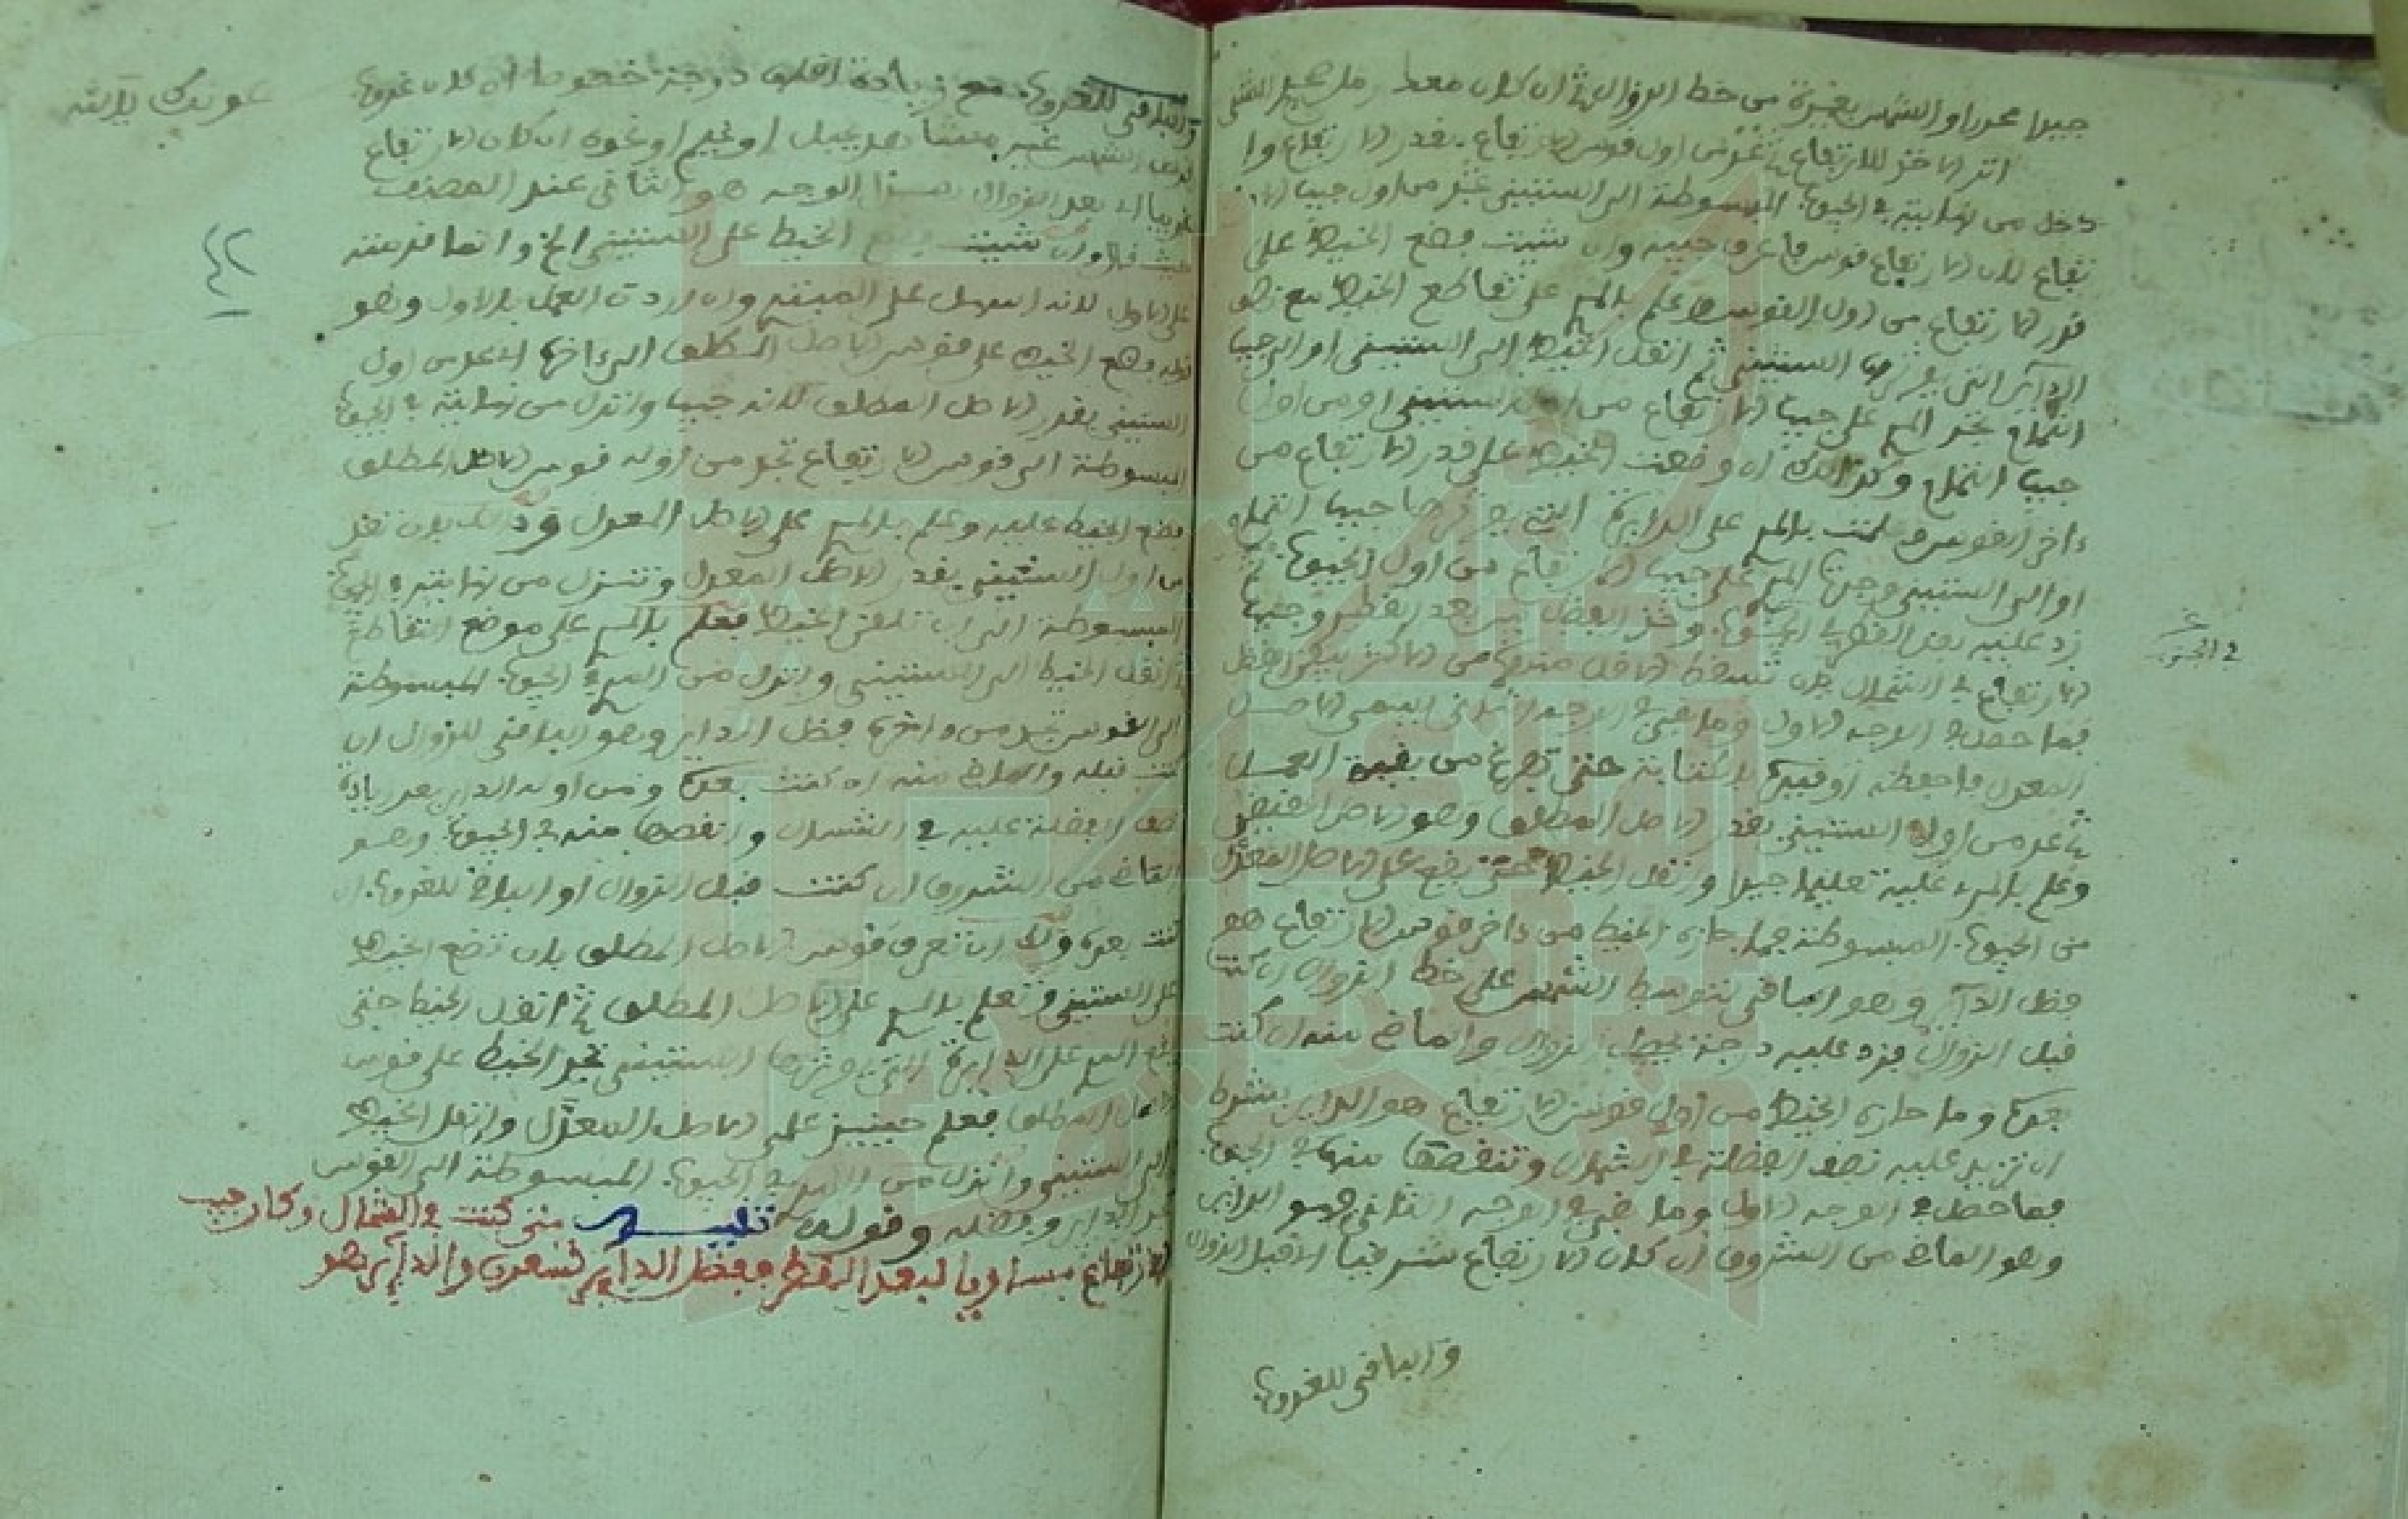 جيبا محررا والشمس بقربة من خط الزوال ان كان معك
اترك ما خذ للارتفاع ثم عد من اول قوس الارتفاع بقدر الارتفاع وا
دخل من نهايته في الجيوب المبسوطة الى الستيني تجد من اول جيب الا
تفاع لان الارتفاع قوس فاعرف جيبه وان شيت فضع الخيط على
قدر الارتفاع من اول القوس وعلم بالمري على تقاطع الخيط مع نصف
الدائرة التي يوترها الستيني ثم انقل الخيط الى الستيني او الى جيب
التمام تجد المري على جيب الارتفاع من اول الستيني او من اول
جيب التمام وكذلك ان وضعت الخيط على قدر الارتفاع من
ءاخر القوس وعلمت بالمري على الدايرة التي يوترها جيب التمام
او الى الستيني وجدت المري على جيب الارتفاع من اول الجيوب ثم
زد عليه بعد القطر في الجنوب وخذ الفضل بين بعد القطر وجيب
الارتفاع في الشمال بان تسقط الاقل منهما من الاكثر يبقى الفضل
فما حصل في الوجه الاول وما بقي في الوجه الثاني اليسمى الاصل
المعدل فاحفظه او قيده بالكتابة حتى تفرغ من بقية العمل
ثم عد من اول الستيني بقدر الاصل المطلق وهو الاصل الحقيقي
وعلم بالمري عليه تعليما جيدا وانقل الخيط حتى يقع على الاصل المعدل
من الجيوب المبسوطة فما حازه الخيط من ءاخر قوس الارتفاع هو
فضل الداير وهو الباقي لتوسط الشمس على خط الزوال ان كنت
قبل الزوال فزد عليه درجة يحصل الزوال والماضي منه ان كنت
بعده وما حازه الخيط من اول قوس الارتفاع هو الداير بشرط
ان تزيد عليه نصف الفضلة في الشمال وتنقصها منه في الجنوب
فما حصل في الوجه الاول وما بقي في الوجه الثاني هو الداير
وهو الماضي من الشروق ان كان الارتفاع شرقيا اي قبل الزوال
والباقي للغروب
في الجنوب
والباقي للغروب مع زيادة درجة خصوصا ان كان غروبها
الشمس غير مشاهد بجبل او بغيم او نحوه ان كان الارتفاع
غربيا اي بعد الزوال هذا الوجه هو الثاني عند المصنف
حيث قال وان شيت فضع الخيط على الستيني الخ وانما قدمته
على الاول لانه اسهل على المبتدي وان اردت العمل بالاول وهو
قوله وضع الخيط على قوس الاصل المطلق الى ءاخرها اي عد من اول
الستيني بقدر الاصل المطلق لانه جيب وانزل من نهايته في الجيوب
المبسوطة الى قوس الارتفاع تجد من اوله قوس الاصل المطلق
فضع الخيط عليه وعلم بالمري على الاصل المعدل وذلك بان تعد
من اول الستيني بقدر الاصل المعدل وتنزل من نهايته في الجيوب
المبسوطة الى ان تلقى الخيط فعلم بالمري على موضع التقاطع
ثم انقل الخيط الى الستيني وانزل من المري في الجيوب المبسوطة
الى القوس تجد من ءاخره فضل الداير وهو الباقي للزوال ان
كنت قبله والماضي منه ان كنت بعده ومن اوله الداير بعد زيادة
نصف الفضلة عليه في الشمال ونقصها منه في الجنوب وهو
الماضي من الشروق ان كنت قبل الزوال او الباقي للغروب ان
كنت بعده ولك ان تعرف قوس الاصل المطلق بان تضع الخيط
على الستيني وتعلم بالمري على الاصل المطلق ثم انقل الخيط حتى
يقع المري على الدايرة التي يوترها الستيني تجد الخيط على قوس
الاصل المطلق فعلم حينيذ على الاصل المعدل وانقل الخيط
الى الستيني وانزل من المري في الجيوب المبسوطة الى القوس
تجد الداير وفضله وقوله تنبيه متى كنت في الشمال وكان جيب
الارتفاع مساويا لبعد القطر ففضل الداير تسعون والداير هو